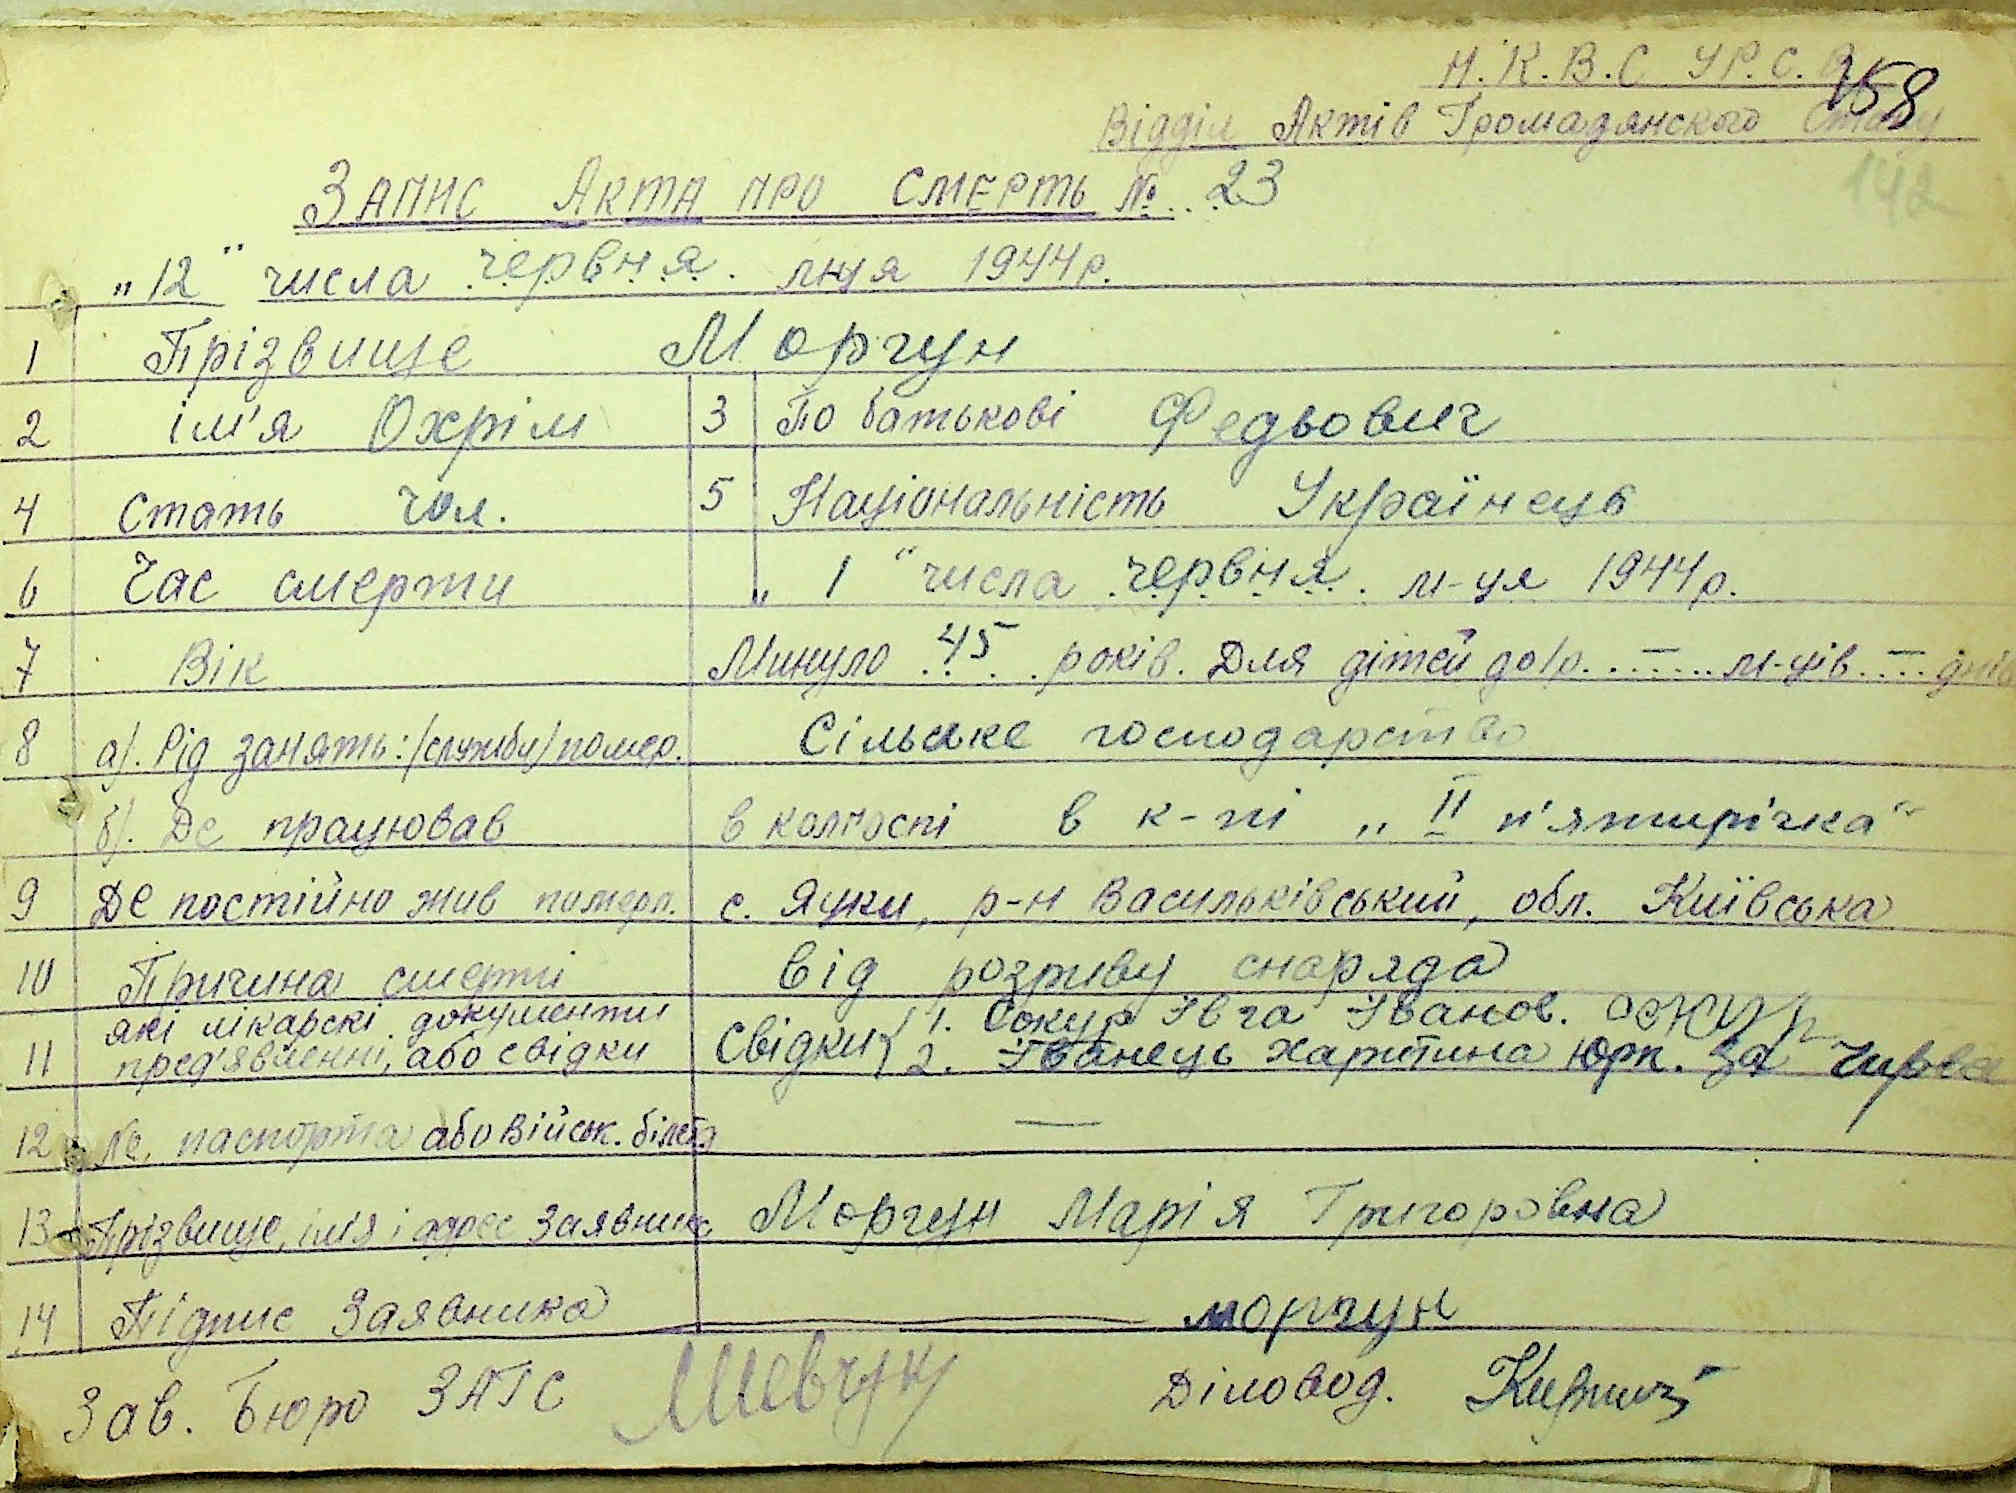 Н.К.В.С УР.С.Р.
158
Відділ Актів Громадянского Стану
142
Запис Акта про смерть №. 23
„12" числа червня. мця 1944р.
1 Прізвище Моргун
2 ім'я Охрім 3 По батькові Федьович
4 Стать чол. 5 Національність Українець
6 Час смерти „1" числа червня. м-ця 1944р.
7 Вік Минуло 45 років. Для дітей до 1р. — м-ців — днів
8 а/. Рід занять:/службу/ помер. Сільське господарство
б/. Де працював в колгоспі в к-пі „II п'ятирічка"
9 Де постійно жив померл. с. Яцки, р-н Васильківський, обл. Київська
10 Причина смерті від розриву снаряда
які лікарскі документи 1. Сокур Івга Іванов. сокур
11 пред'явленні, або свідки Свідки{ 2. Іванець Харитина Юрк. За Чирва
12 №. паспорта або військ. білета —
13 Прізвище, ім'я і адрес Заявника Моргун Марія Григоровна
14 Підпис Заявника моргун
Зав. Бюро ЗАГС Шевчук Діловод.